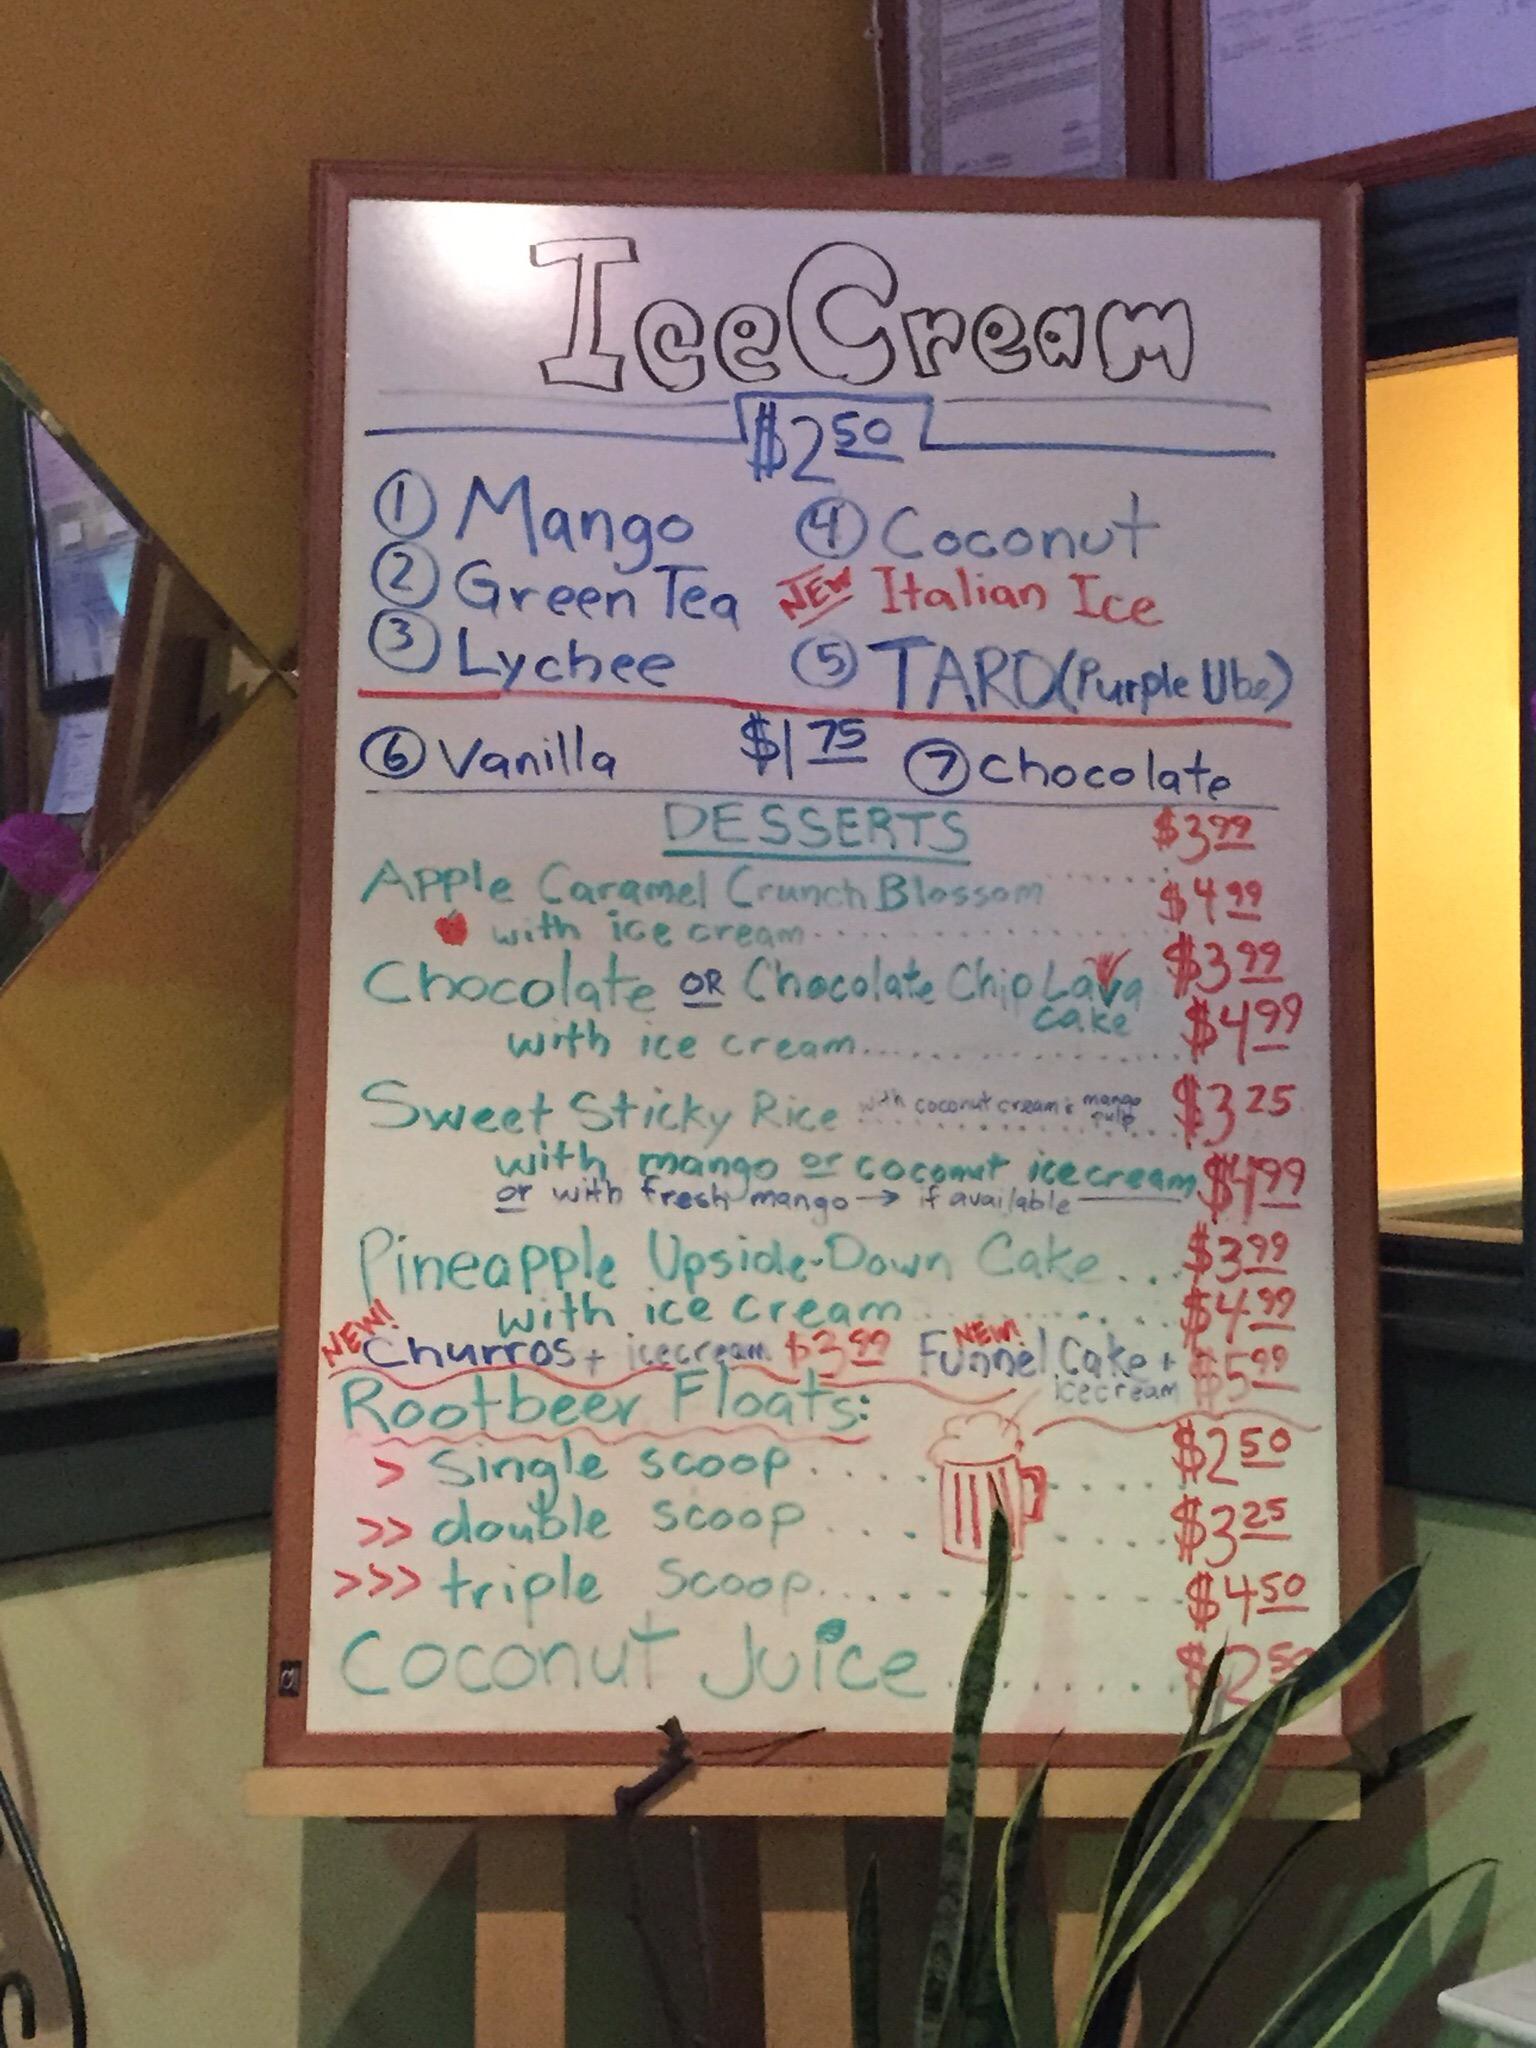 IceCream
$2.50
① Mango ④ Coconut
② Green Tea NEW Italian Ice
③ Lychee ⑤ TARO (Purple Ube)
⑥ Vanilla $1.75 ⑦ Chocolate
DESSERTS $3.99
Apple Caramel Crunch Blossom ...... $4.99
with ice cream..............
Chocolate OR Chocolate Chip Lava $3.99
cake
with ice cream.............. $4.99
Sweet Sticky Rice with coconut cream & mango pulp ........ $3.25
with mango or coconut ice cream $4.99
or with fresh mango → if available
Pineapple Upside-Down Cake... $3.99
with ice cream............ $4.99
NEW! Churros + icecream $3.99 NEW! Funnel Cake + icecream $5.99
Rootbeer Floats:
> Single scoop........ $2.50
>> double scoop........ $3.25
>>> triple scoop........ $4.50
Coconut Juice........ $2.50